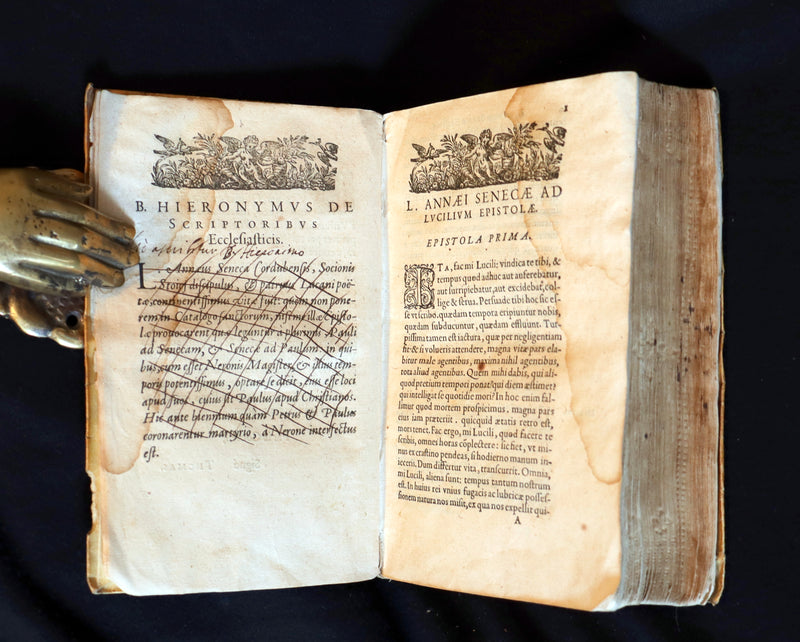 B. HIERONYMVS DE
SCRIPTORIBVS
Ecclesiasticis.
ascribitur Hieronimo
L. Annæus Seneca Cordubensis, Socionis
Stoici discipulus, & patruus Lucani poë-
tæ, continentissimæ vitæ fuit: quem non pone-
rem in Catalogo sanctorum, nisi me illæ Episto-
læ provocarent quæ leguntur à plurimis, Pauli
ad Senecam, & Senecæ ad Paulum. in qui-
bus cum esset Neronis Magister, & illius tem-
poris potentissimus, optare se dicit, eius esse loci
apud suos, cuius sit Paulus apud Christianos.
Hic ante biennium quàm Petrus & Paulus
coronarentur martyrio, à Nerone interfectus
est.
1
L. ANNÆI SENECÆ AD
LVCILIVM EPISTOLÆ.
EPISTOLA PRIMA.
ITA, fac mi Lucili: vindica te tibi, &
tempus quod adhuc aut auferebatur,
aut surripiebatur, aut excidebat, col-
lige & serua. Persuade tibi hoc sic es-
se vt scribo. quædam tempora eripiuntur nobis,
quædam subducuntur, quædam effluunt. Tur-
pissima tamen est iactura, quæ per negligentiam
fit: & si volueris attendere, magna vitæ pars ela-
bitur male agentibus, maxima nihil agentibus,
tota aliud agentibus. Quem mihi dabis, qui ali-
quod pretium tempori ponat? qui diem æstimet?
qui intelligat se quotidie mori? In hoc enim fal-
limur quod mortem prospicimus. magna pars
eius iam præteriit. quicquid ætatis retro est,
mors tenet. Fac ergo, mi Lucili, quod facere te
scribis, omnes horas complectere: sic fiet, vt mi-
nus ex crastino pendeas, si hodierno manum in-
ieceris. Dum differtur vita, transcurrit. Omnia,
mi Lucili, aliena sunt: tempus tantum nostrum
est. In huius rei vnius fugacis ac lubricæ posses-
sionem natura nos misit, ex qua nos expellit qui-
A